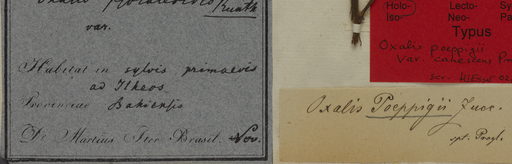 Oxalis
Kunth
var.
Habitat in sylvis primaevis
ad Ilheos
Provinciae Bahiensis
Dr. Martius Iter Brasil. Nov.
Holo- Lecto- Sy
Iso- Neo- Pa
Typus
Oxalis poeppigii
var. canescens Pro
Oxalis Poeppigii Zucc.
spt. Progl.